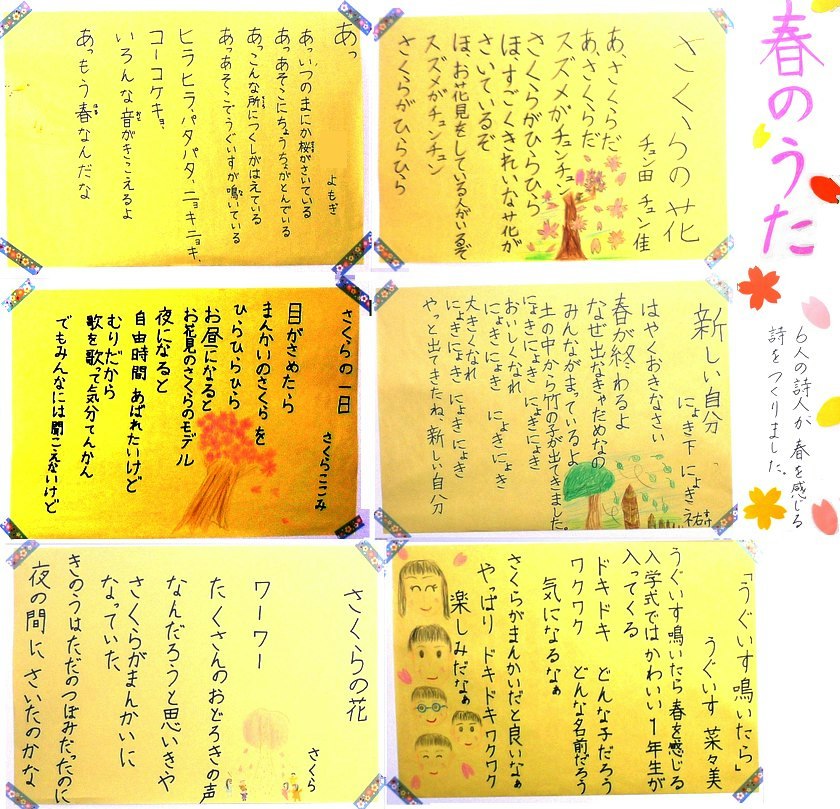 春のうた
6人の詩人が春を感じる
詩をつくりました。
さくらの花
チュン田 チュン佳
あ、さくらだ
あ、さくらだ
スズメがチュンチュン
さくらがひらひら
ほ、すごくきれいな花が
さいているぞ
ほ、お花見をしている人がいるぞ
スズメがチュンチュン
さくらがひらひら
あっ
よもぎ
あっいつのまにか桜がさいている
あっあそこにちょうちょがとんでいる
あっこんな所につくしがはえている
あっあそこでうぐいすが鳴いている
ヒラヒラ、パタパタ、ニョキニョキ、
コーコケキョ
いろんな音がきこえるよ
あっもう春なんだな
新しい自分
にょき下 にょき祐
はやくおきなさい
春が終わるよ
なぜ出なきゃだめなの
みんながまっているよ
土の中から竹の子が出てきました。
にょきにょき にょきにょき
おいしくなれ
にょきにょき にょきにょき
大きくなれ
にょきにょき にょきにょき
やっと出てきたね、新しい自分
さくらの一日
さくらここみ
目がさめたら
まんかいのさくらを
ひらひらひら
お昼になると
お花見のさくらのモデル
夜になると
自由時間 あばれたいけど
むりだから
歌を歌って気分てんかん
でもみんなには聞こえないけど
「うぐいす鳴いたら」
うぐいす 菜々美
うぐいす鳴いたら春を感じる
入学式ではかわいい1年生が
入ってくる
ドキドキ どんな子だろう
ワクワク どんな名前だろう
気になるなぁ
さくらがまんかいだと良いなぁ
やっぱり ドキドキワクワク
楽しみだなぁ
さくらの花
さくら
ワーワー
たくさんのおどろきの声
なんだろうと思いきや
さくらがまんかいに
なっていた
きのうはただのつぼみだったのに
夜の間にさいたのかな